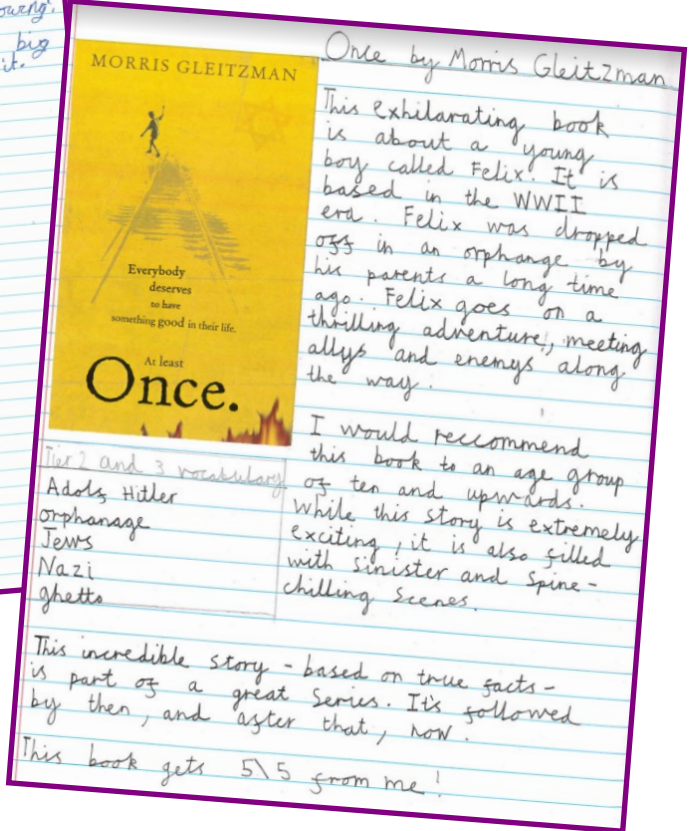 owing.
big
it.
MORRIS GLEITZMAN
Everybody
deserves
to have
something good in their life.
At least
Once.
Once by Morris Gleitzman
This exhilarating book
is about a young
boy called Felix. It is
based in the WWII
era. Felix was dropped
off in an orphange by
his parents a long time
ago. Felix goes on a
thrilling adventure, meeting
allys and enemys along
the way.
I would reccommend
this book to an age group
of ten and upwards.
While this story is extremely
exciting, it is also filled
with sinister and spine-
chilling scenes.
Tier 2 and 3 vocabulary
Adolf Hitler
orphanage
Jews
Nazi
ghetto
This incredible story - based on true facts -
is part of a great series. It's followed
by then, and after that, now.
This book gets 5\5 from me!